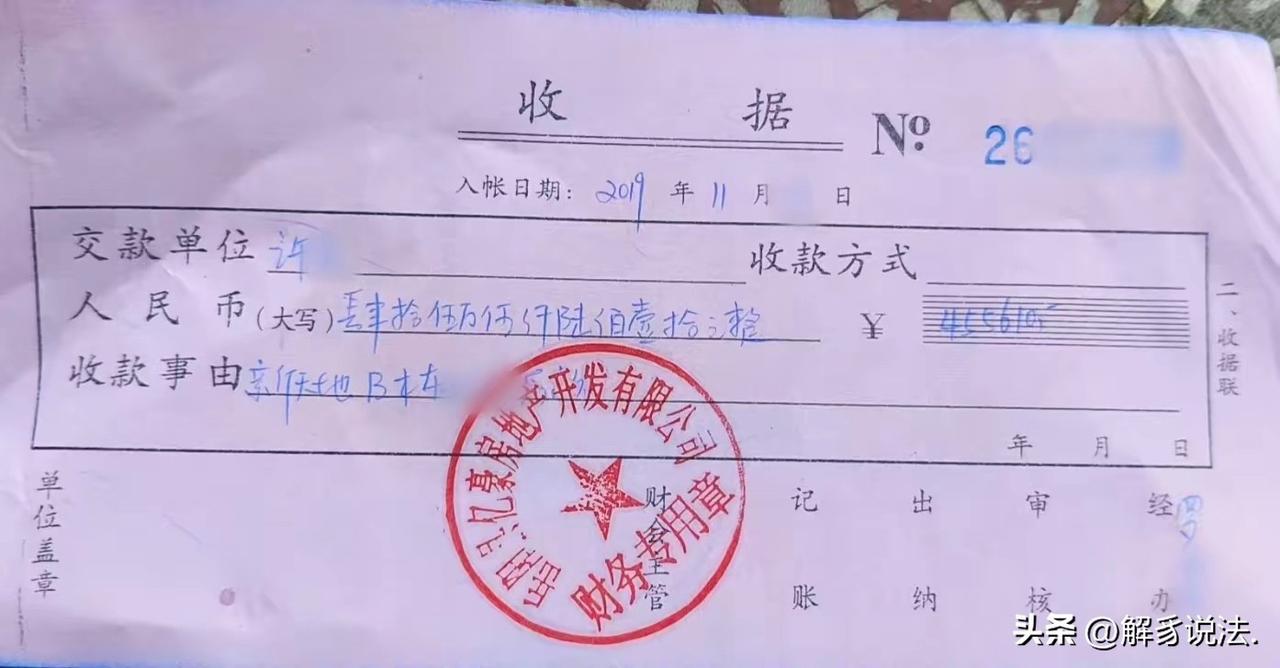 收 据 № 26
入帐日期: 2019 年 11 月 日
交款单位 许 收款方式
人民币(大写) 肆拾伍万伍仟陆佰壹拾元整 ¥ 455610
收款事由 天地B栋
年 月 日
二、收据联
亿豪房地产开发有限公司
财务专用章
单位盖章 财会主管 记账 出纳 审核 经办
头条 @解豸说法.